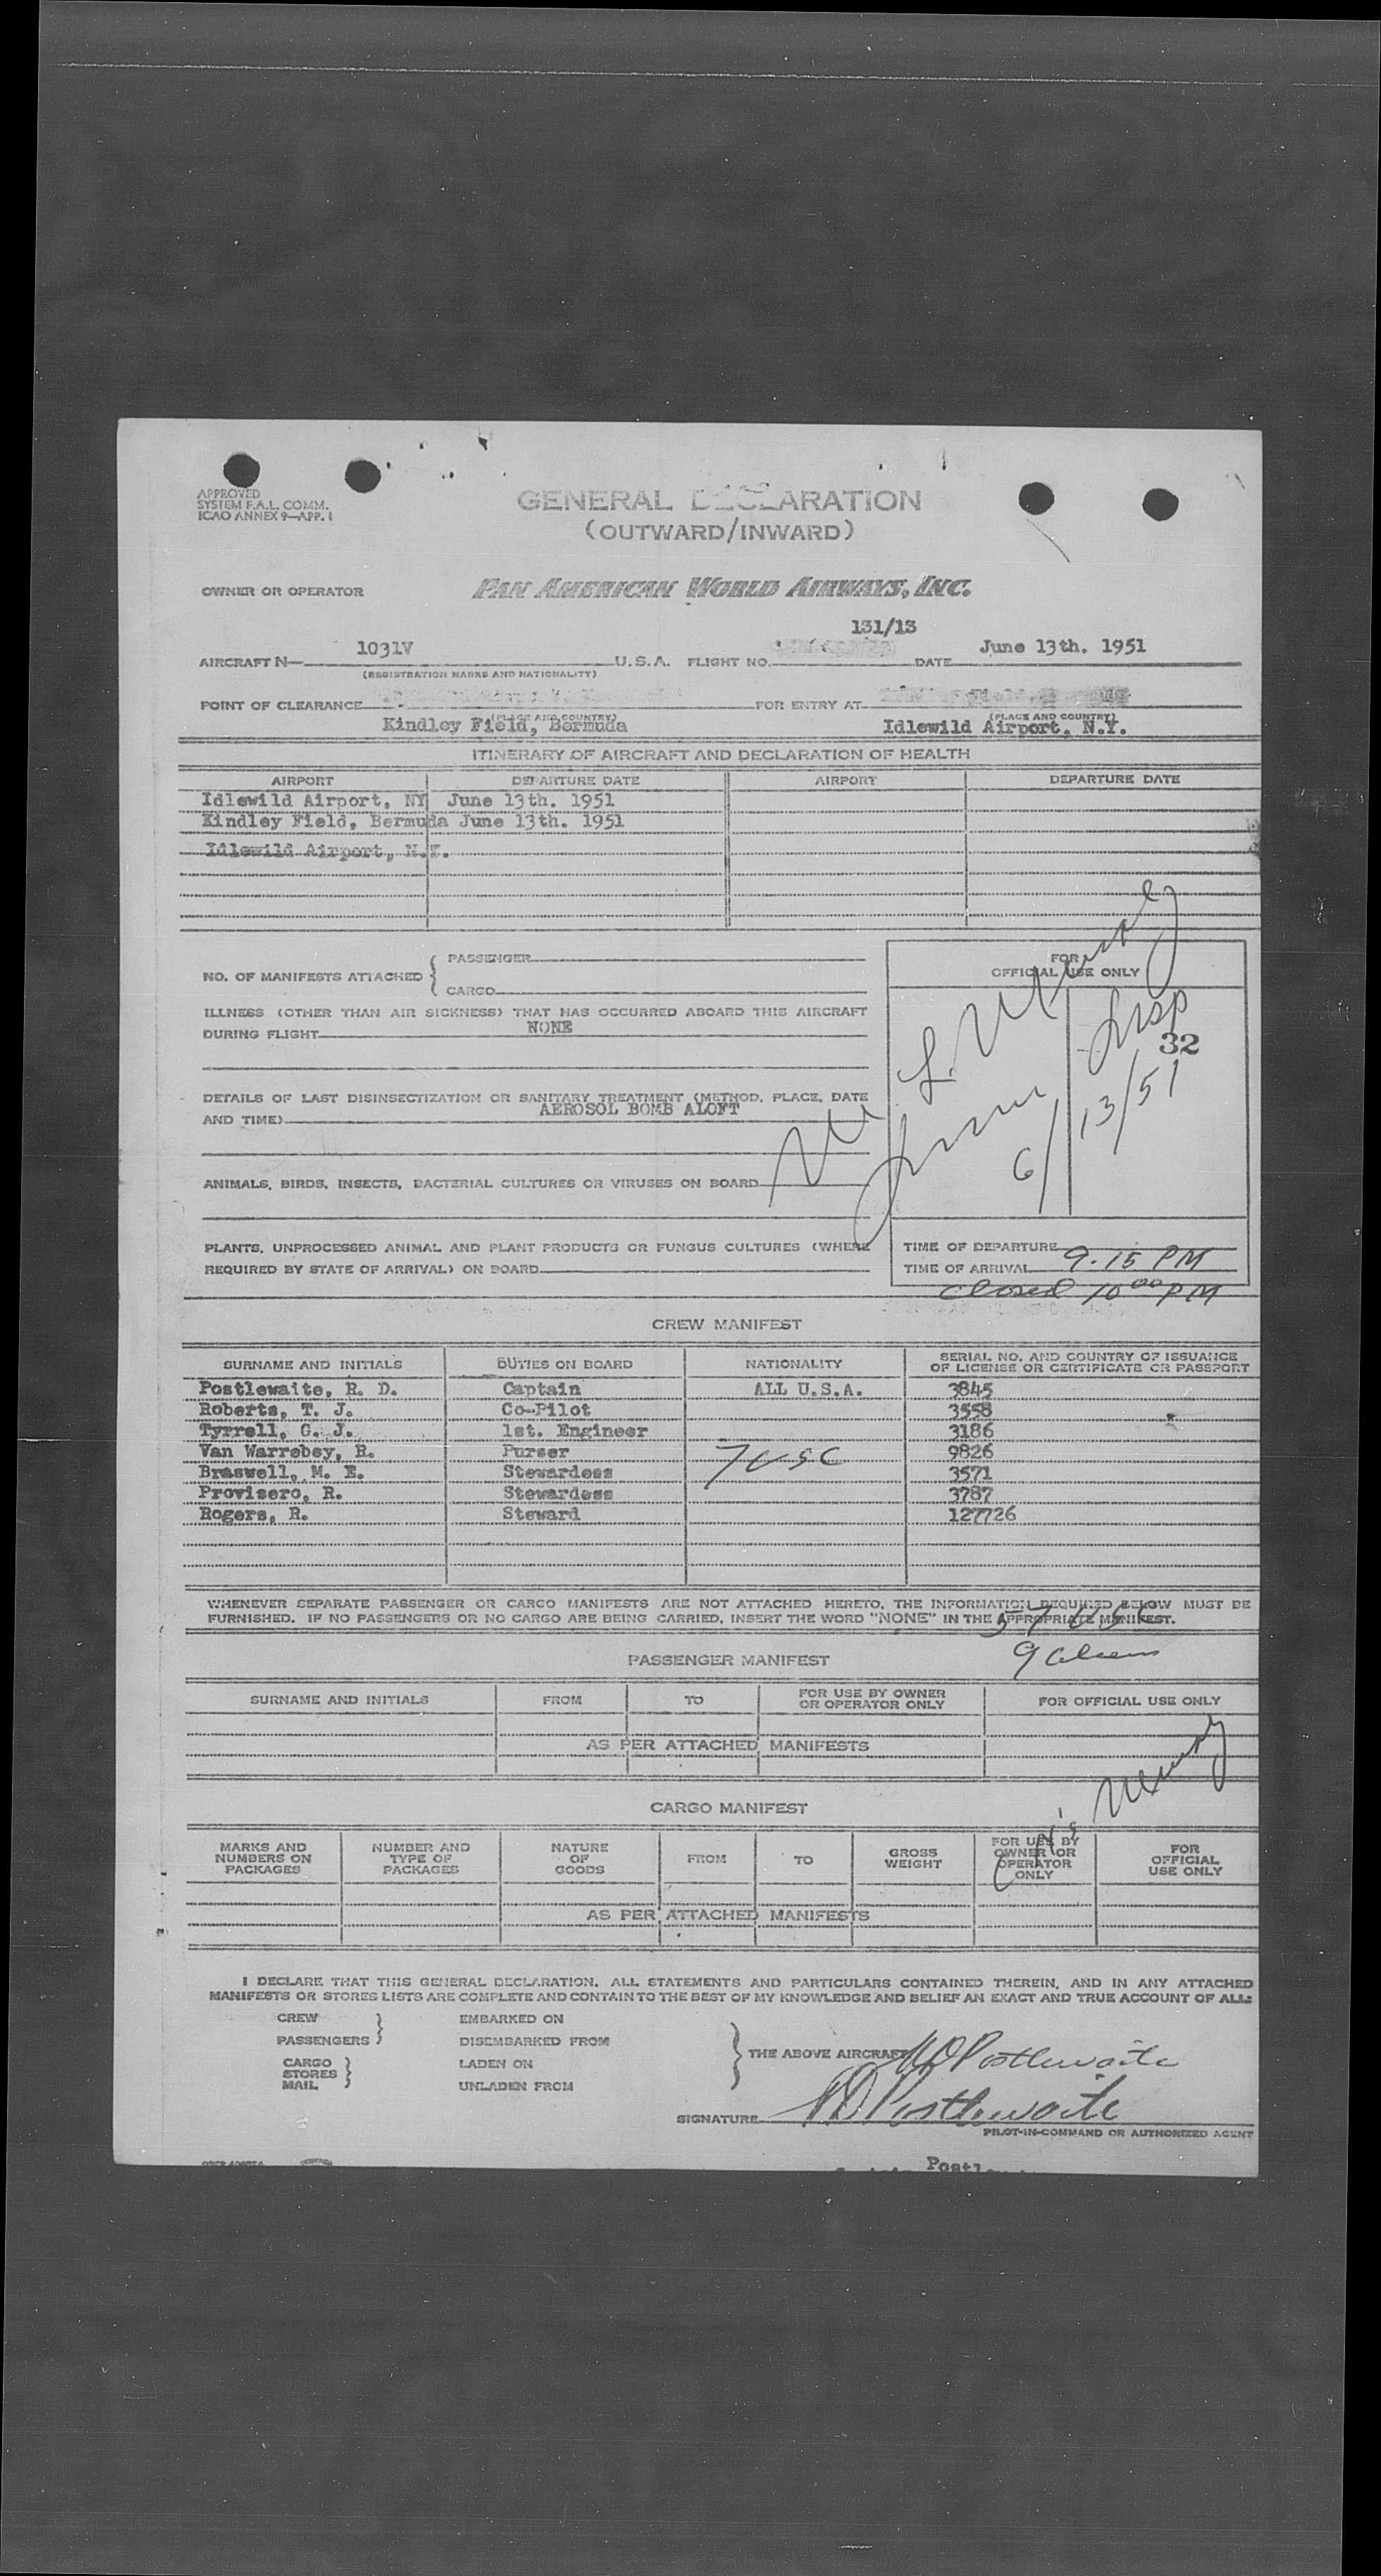 APPROVED
SYSTEM F.A.L. COMM.
ICAO ANNEX 9—APP. 1
GENERAL DECLARATION
(OUTWARD/INWARD)
OWNER OR OPERATOR PAN AMERICAN WORLD AIRWAYS, INC.
131/13
AIRCRAFT N— 1031V U.S.A. FLIGHT NO. DATE June 13th. 1951
(REGISTRATION MARKS AND NATIONALITY)
POINT OF CLEARANCE FOR ENTRY AT
(PLACE AND COUNTRY) (PLACE AND COUNTRY)
Kindley Field, Bermuda Idlewild Airport, N.Y.
ITINERARY OF AIRCRAFT AND DECLARATION OF HEALTH
AIRPORT DEPARTURE DATE AIRPORT DEPARTURE DATE
Idlewild Airport, NY June 13th. 1951
Kindley Field, Bermuda June 13th. 1951
Idlewild Airport, N.Y.
NO. OF MANIFESTS ATTACHED { PASSENGER
CARGO
FOR
OFFICIAL USE ONLY
ILLNESS (OTHER THAN AIR SICKNESS) THAT HAS OCCURRED ABOARD THIS AIRCRAFT
DURING FLIGHT NONE
Insp
32
6/13/51
DETAILS OF LAST DISINSECTIZATION OR SANITARY TREATMENT (METHOD, PLACE, DATE
AND TIME) AEROSOL BOMB ALOFT
ANIMALS, BIRDS, INSECTS, BACTERIAL CULTURES OR VIRUSES ON BOARD
PLANTS, UNPROCESSED ANIMAL AND PLANT PRODUCTS OR FUNGUS CULTURES (WHERE
REQUIRED BY STATE OF ARRIVAL) ON BOARD
TIME OF DEPARTURE
TIME OF ARRIVAL 9.15 PM
closed 10 00 PM
CREW MANIFEST
SURNAME AND INITIALS DUTIES ON BOARD NATIONALITY SERIAL NO. AND COUNTRY OF ISSUANCE OF LICENSE OR CERTIFICATE OR PASSPORT
Postlewaite, R. D. Captain ALL U.S.A. 3845
Roberts, T. J. Co-Pilot 3558
Tyrrell, G. J. 1st. Engineer 3186
Van Warrebey, R. Purser 9826
Braswell, M. E. Stewardess 7 USC 3571
Provisero, R. Stewardess 3787
Rogers, R. Steward 127726
WHENEVER SEPARATE PASSENGER OR CARGO MANIFESTS ARE NOT ATTACHED HERETO, THE INFORMATION REQUIRED BELOW MUST BE
FURNISHED. IF NO PASSENGERS OR NO CARGO ARE BEING CARRIED, INSERT THE WORD "NONE" IN THE APPROPRIATE MANIFEST.
9 aliens
PASSENGER MANIFEST
SURNAME AND INITIALS FROM TO FOR USE BY OWNER OR OPERATOR ONLY FOR OFFICIAL USE ONLY
AS PER ATTACHED MANIFESTS
CARGO MANIFEST
MARKS AND NUMBERS ON PACKAGES NUMBER AND TYPE OF PACKAGES NATURE OF GOODS FROM TO GROSS WEIGHT FOR USE BY OWNER OR OPERATOR ONLY FOR OFFICIAL USE ONLY
AS PER ATTACHED MANIFESTS
I DECLARE THAT THIS GENERAL DECLARATION, ALL STATEMENTS AND PARTICULARS CONTAINED THEREIN, AND IN ANY ATTACHED
MANIFESTS OR STORES LISTS ARE COMPLETE AND CONTAIN TO THE BEST OF MY KNOWLEDGE AND BELIEF AN EXACT AND TRUE ACCOUNT OF ALL:
CREW EMBARKED ON
PASSENGERS DISEMBARKED FROM
CARGO LADEN ON
STORES
MAIL UNLADEN FROM
THE ABOVE AIRCRAFT RD Postlewaite
SIGNATURE RD Postlewaite
PILOT-IN-COMMAND OR AUTHORIZED AGENT